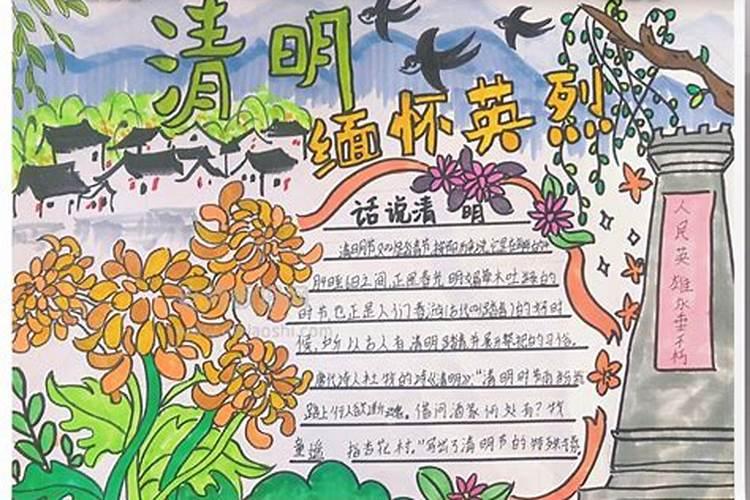 清明
缅怀英烈
话说清 明
清明节又叫踏青节
月 日之间,正是春光明媚草木吐绿的
时节,也正是人们春游(古代叫踏青)的好时
候,所以古人有清明踏青并开展 的习俗。
唐代诗人杜牧的诗《清明》:"清明时节雨纷纷
路上行人欲断魂。借问酒家何处有?牧
童遥 指杏花村。"写出了清明节的特殊
人民英雄永垂不朽